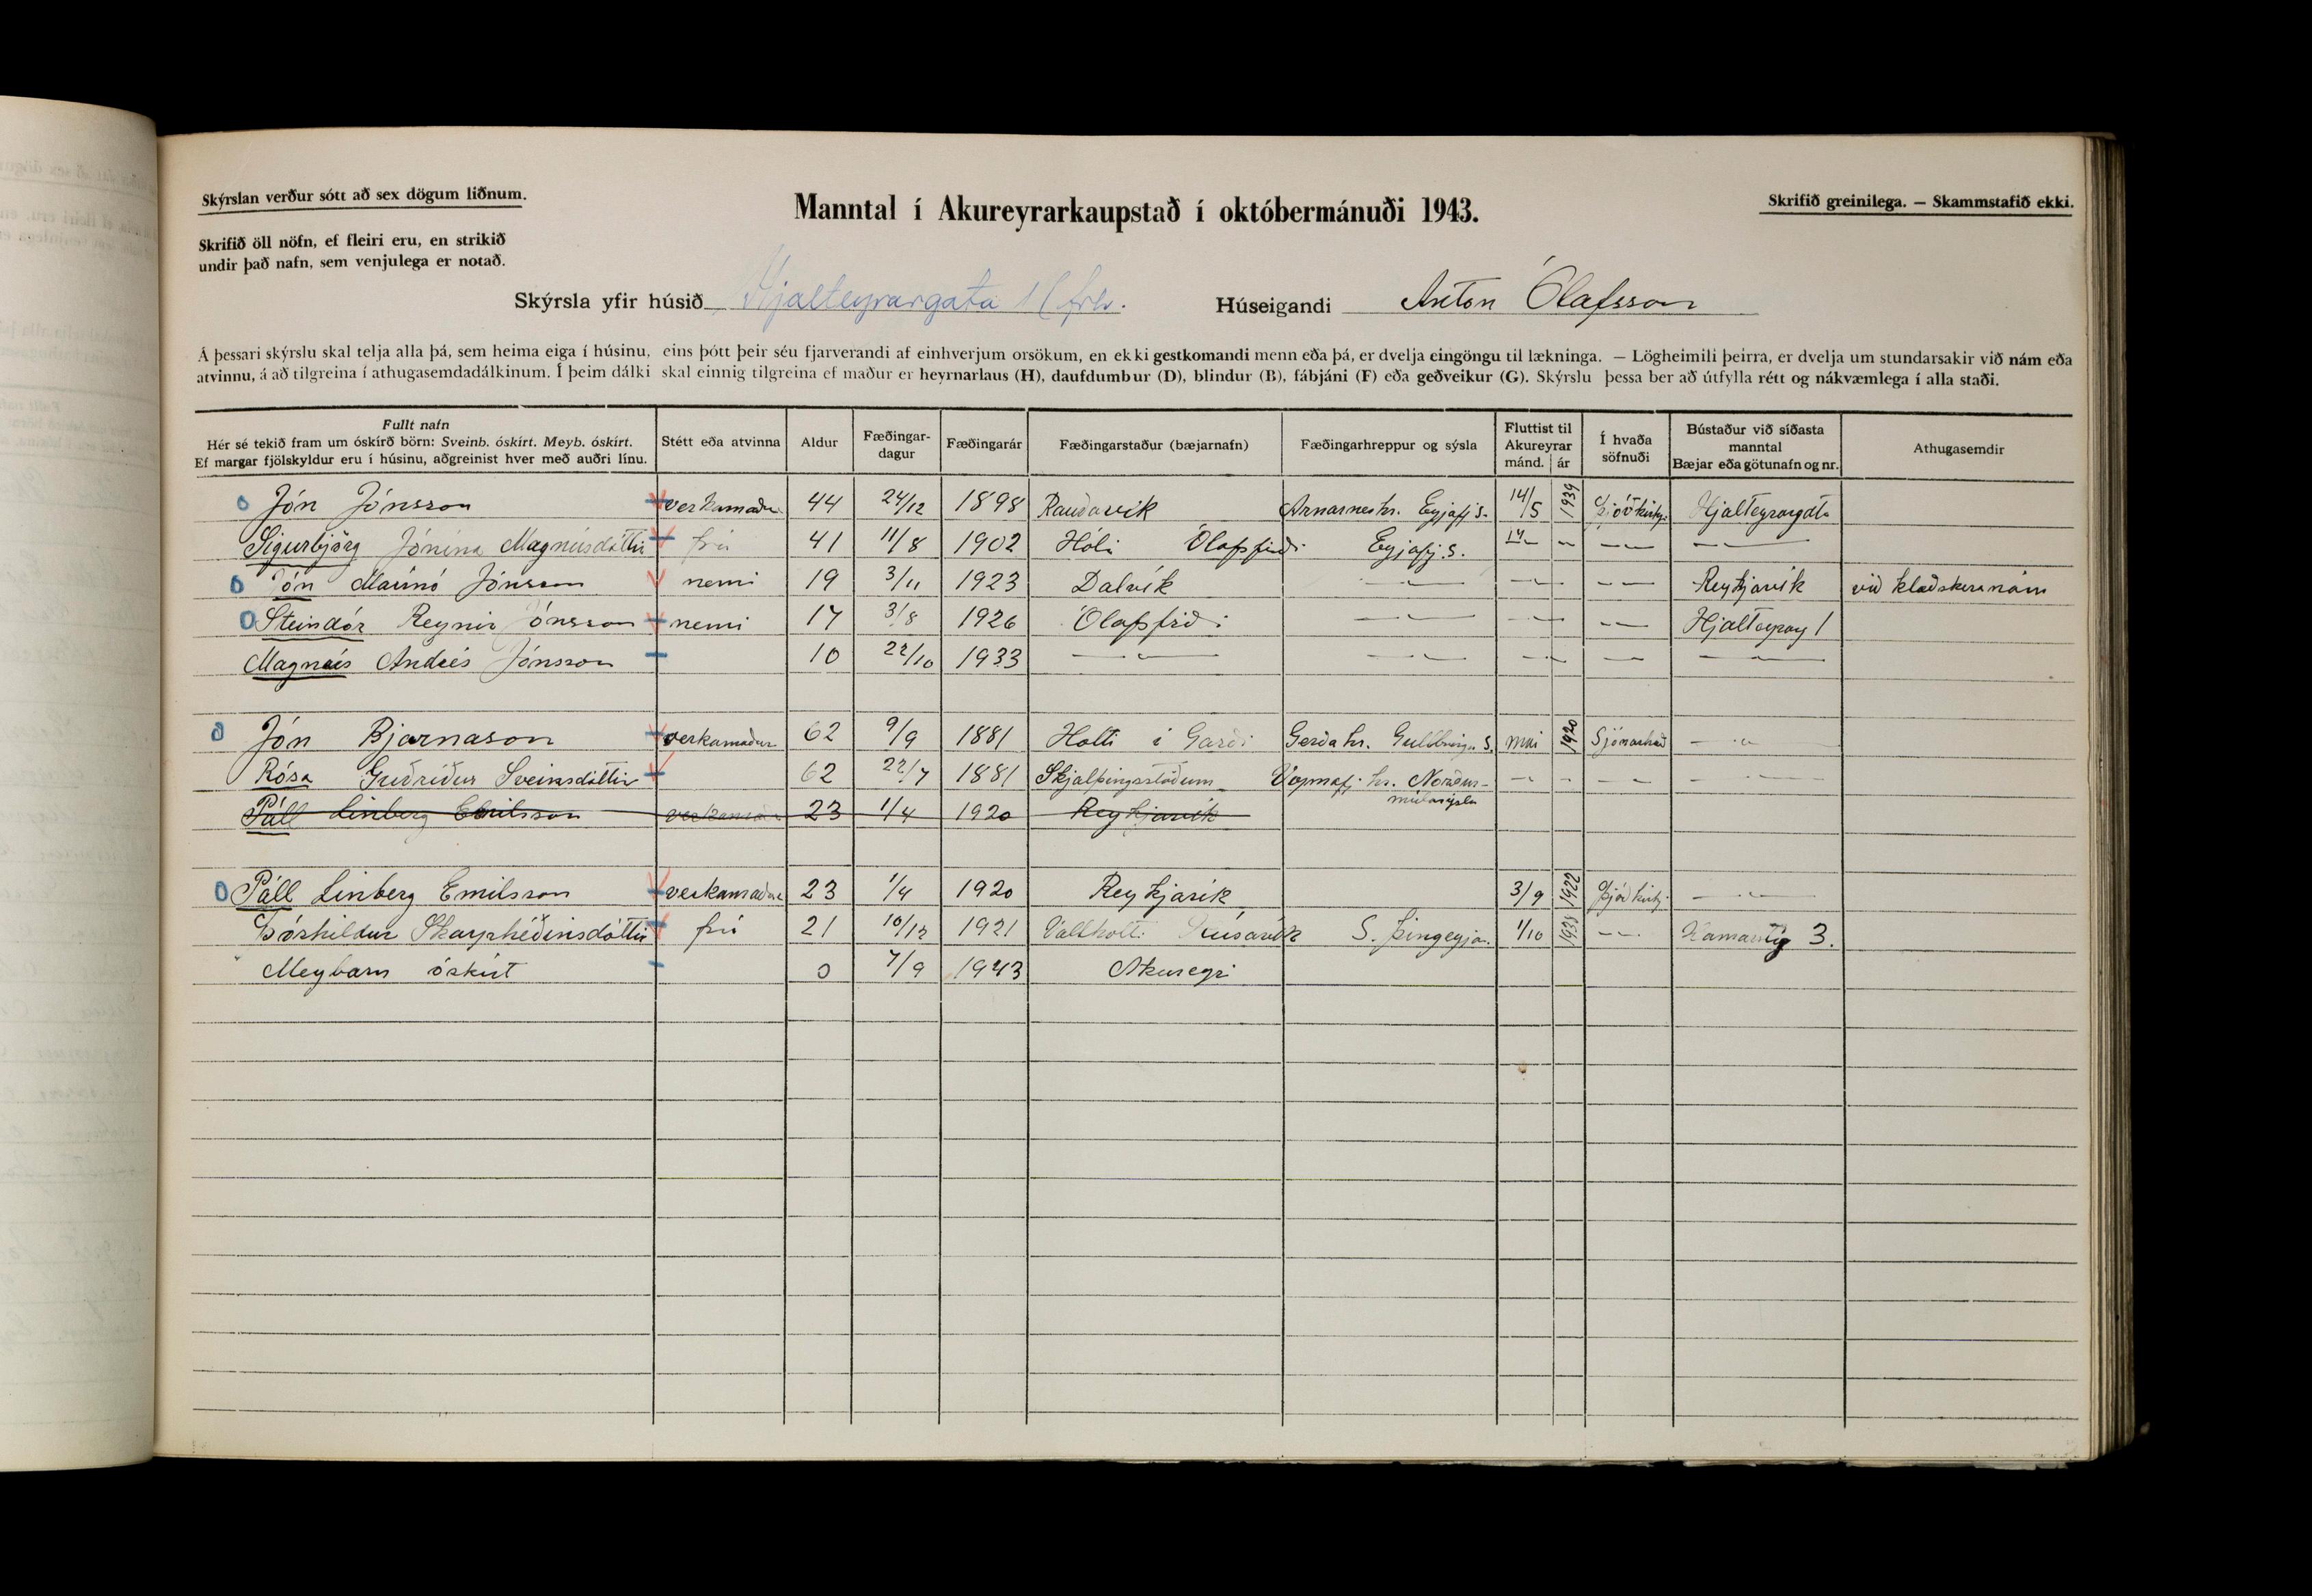 Skýrslan verður sótt að sex dögum liðnum.
Manntal í Akureyrarkaupstað í októbermánuði 1943.
Skrifið greinilega. — Skammstafið ekki.
Skrifið öll nöfn, ef fleiri eru, en strikið
undir það nafn, sem venjulega er notað.
Skýrsla yfir húsið Hjalteyrargata 1 Húseigandi Anton Ólafsson
Á þessari skýrslu skal telja alla þá, sem heima eiga í húsinu, eins þótt þeir séu fjarverandi af einhverjum orsökum, en ekki gestkomandi menn eða þá, er dvelja eingöngu til lækninga. — Lögheimili þeirra, er dvelja um stundarsakir við nám eða
atvinnu, á að tilgreina í athugasemdadálkinum. Í þeim dálki skal einnig tilgreina ef maður er heyrnarlaus (H), daufdumbur (D), blindur (B), fábjáni (F) eða geðveikur (G). Skýrslu þessa ber að útfylla rétt og nákvæmlega í alla staði.
Fullt nafn
Hér sé tekið fram um óskírð börn: Sveinb. óskírt. Meyb. óskírt.
Ef margar fjölskyldur eru í húsinu, aðgreinist hver með auðri línu.
Stétt eða atvinna
Aldur
Fæðingar-
dagur
Fæðingarár
Fæðingarstaður (bæjarnafn)
Fæðingarhreppur og sýsla
Fluttist til
Akureyrar
mánd. ár
Í hvaða
söfnuði
Bústaður við síðasta
manntal
Bæjar eða götunafn og nr.
Athugasemdir
Jón Jónsson verkamaður 44 24/12 1898 Rauðavik Arnarneshr. Eyjafj s. 14/5 1939 Þjóðkirkj. Hjalteyrargata
Sigurbjörg Jónína Magnúsdóttir frú 41 11/8 1902 Hóli Ólafsfirði Eyjafj. s. 14 — — — —
Jón Marinó Jónsson nemi 19 3/11 1923 Dalvík — — — — Reykjavík við klæðskeranám
Steindór Reynir Jónsson nemi 17 3/8 1926 Ólafsfirði — — — — Hjalteyrarg 1
Magnús Andrés Jónsson 10 22/10 1933 — — — — —
Jón Bjarnason verkamaður 62 9/9 1881 Holti í Garði Gerða hr. Gullbringu S. maí 1920 Sjónarhæð —
Rósa Guðríður Sveinsdóttir 62 22/7 1881 Skjalþingsstöðum Vopnafj. hr. Norður- — — — —
múlasýslu
Páll Linberg Emilsson verkamaður 23 1/4 1920 Reykjavík
Páll Linberg Emilsson verkamaður 23 1/4 1920 Reykjavík 3/9 1922 Þjóðkirkj. —
Þórhildur Skarphéðinsdóttir frú 21 10/12 1921 Vallholti Húsavík S. Þingeyja. 1/10 1938 — 3.
Meybarn óskírt 0 7/9 1943 Akureyri